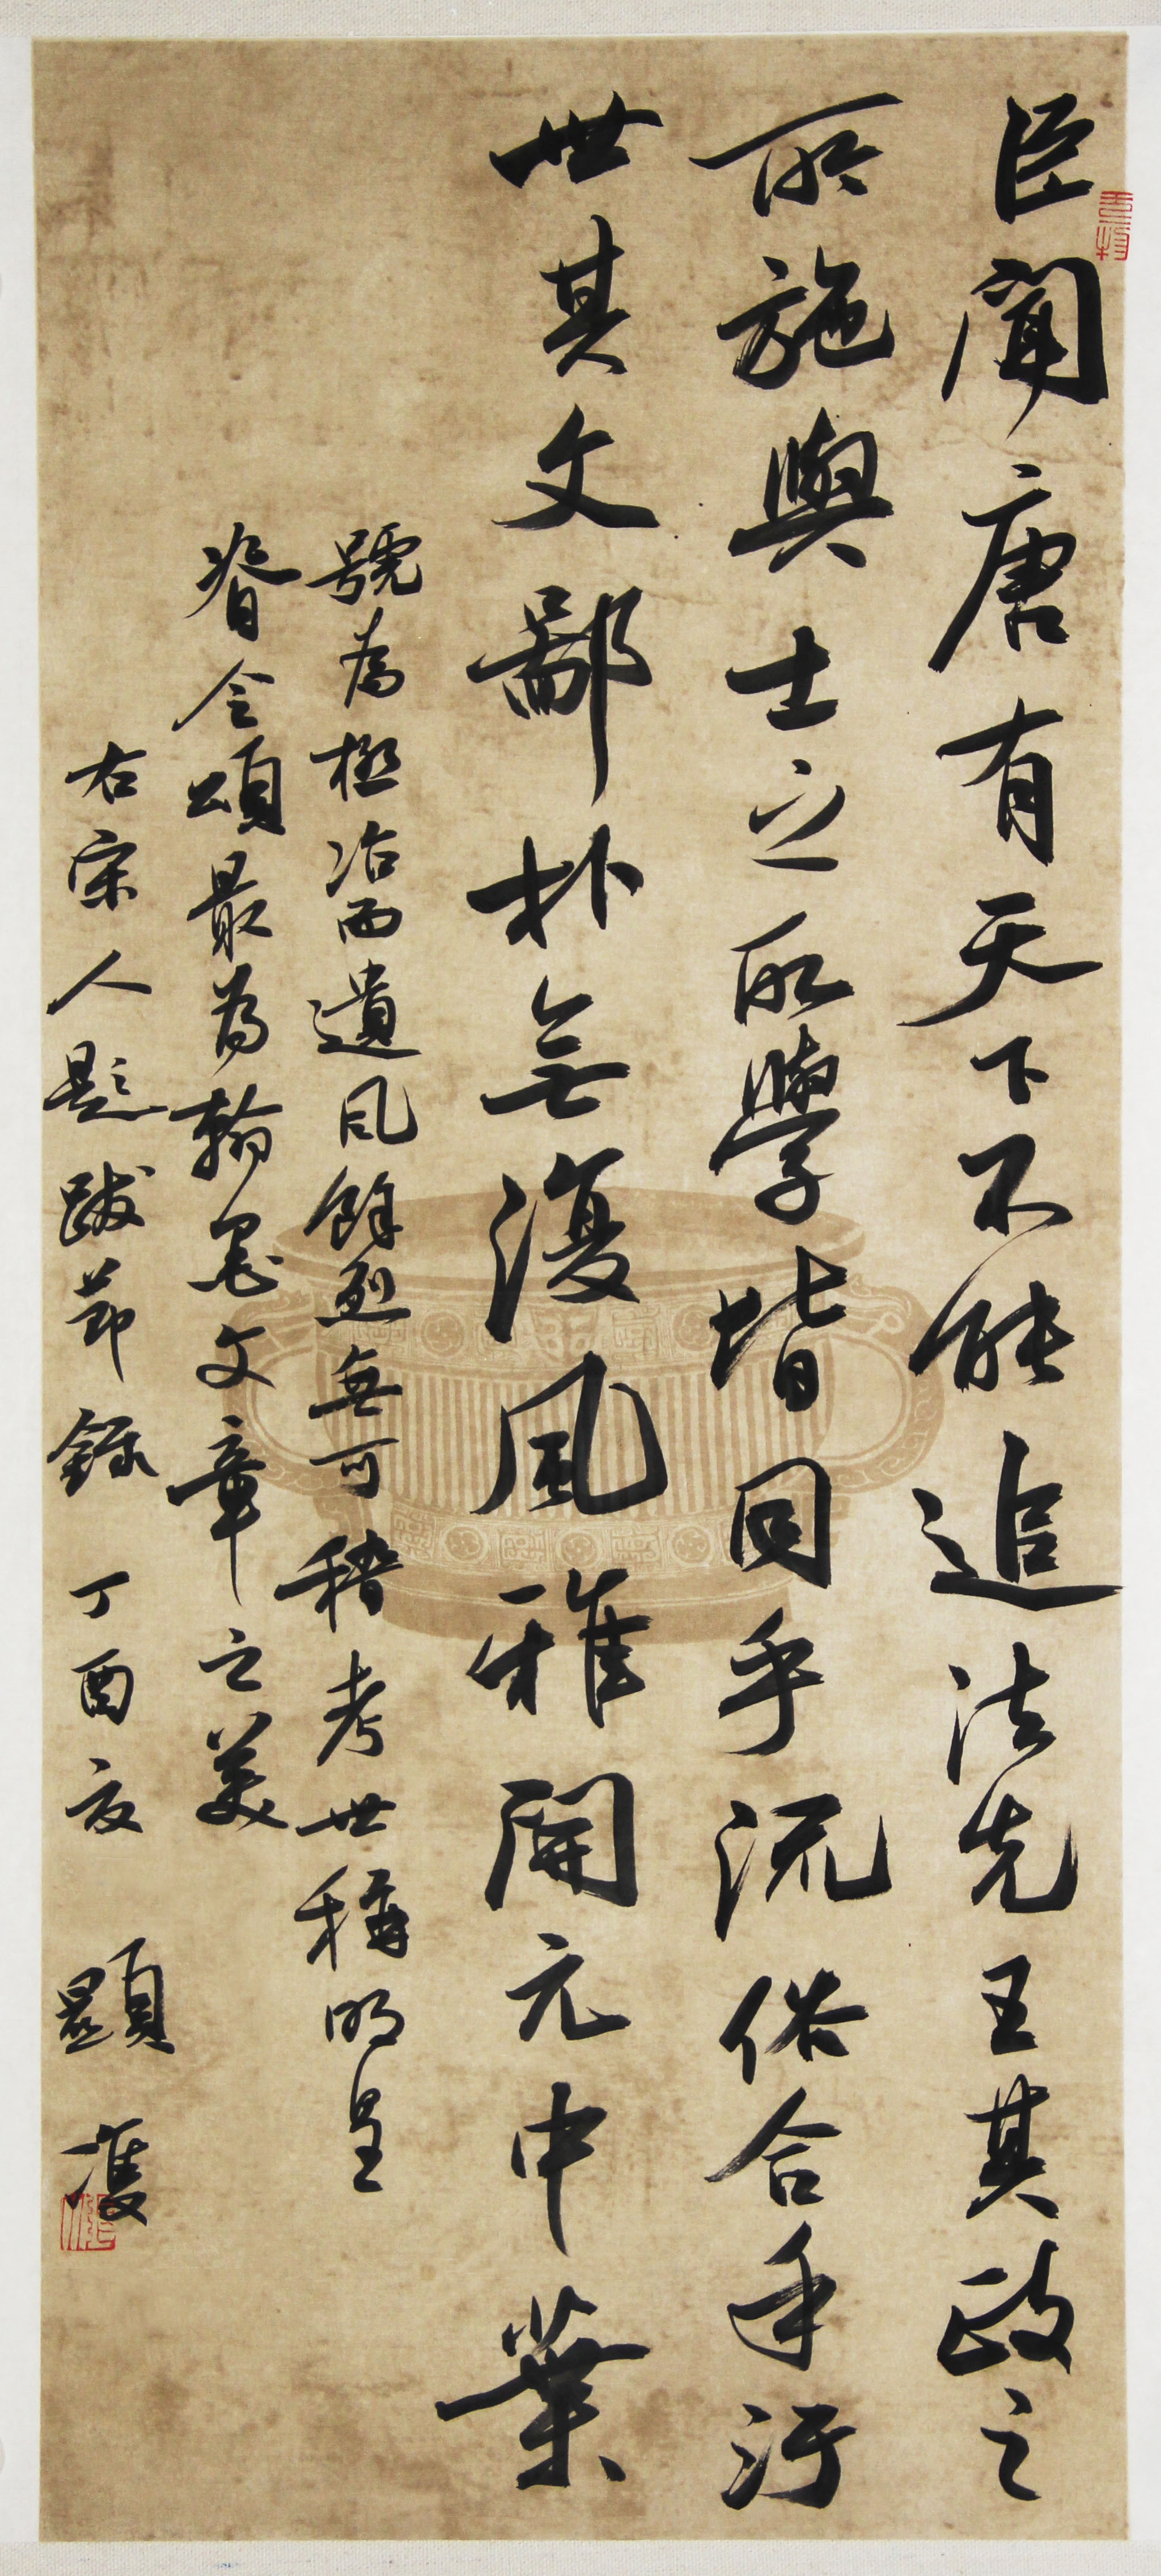 臣聞唐有天下不能追法先王其政之
所施與士之所學皆同乎流俗合乎污
世其文鄙朴無復風雅開元中業
號為極治而遺風餘烈無可稽考世稱明皇
脊令頌最為翰墨文章之美
右宋人題跋節錄 丁酉夏 顯